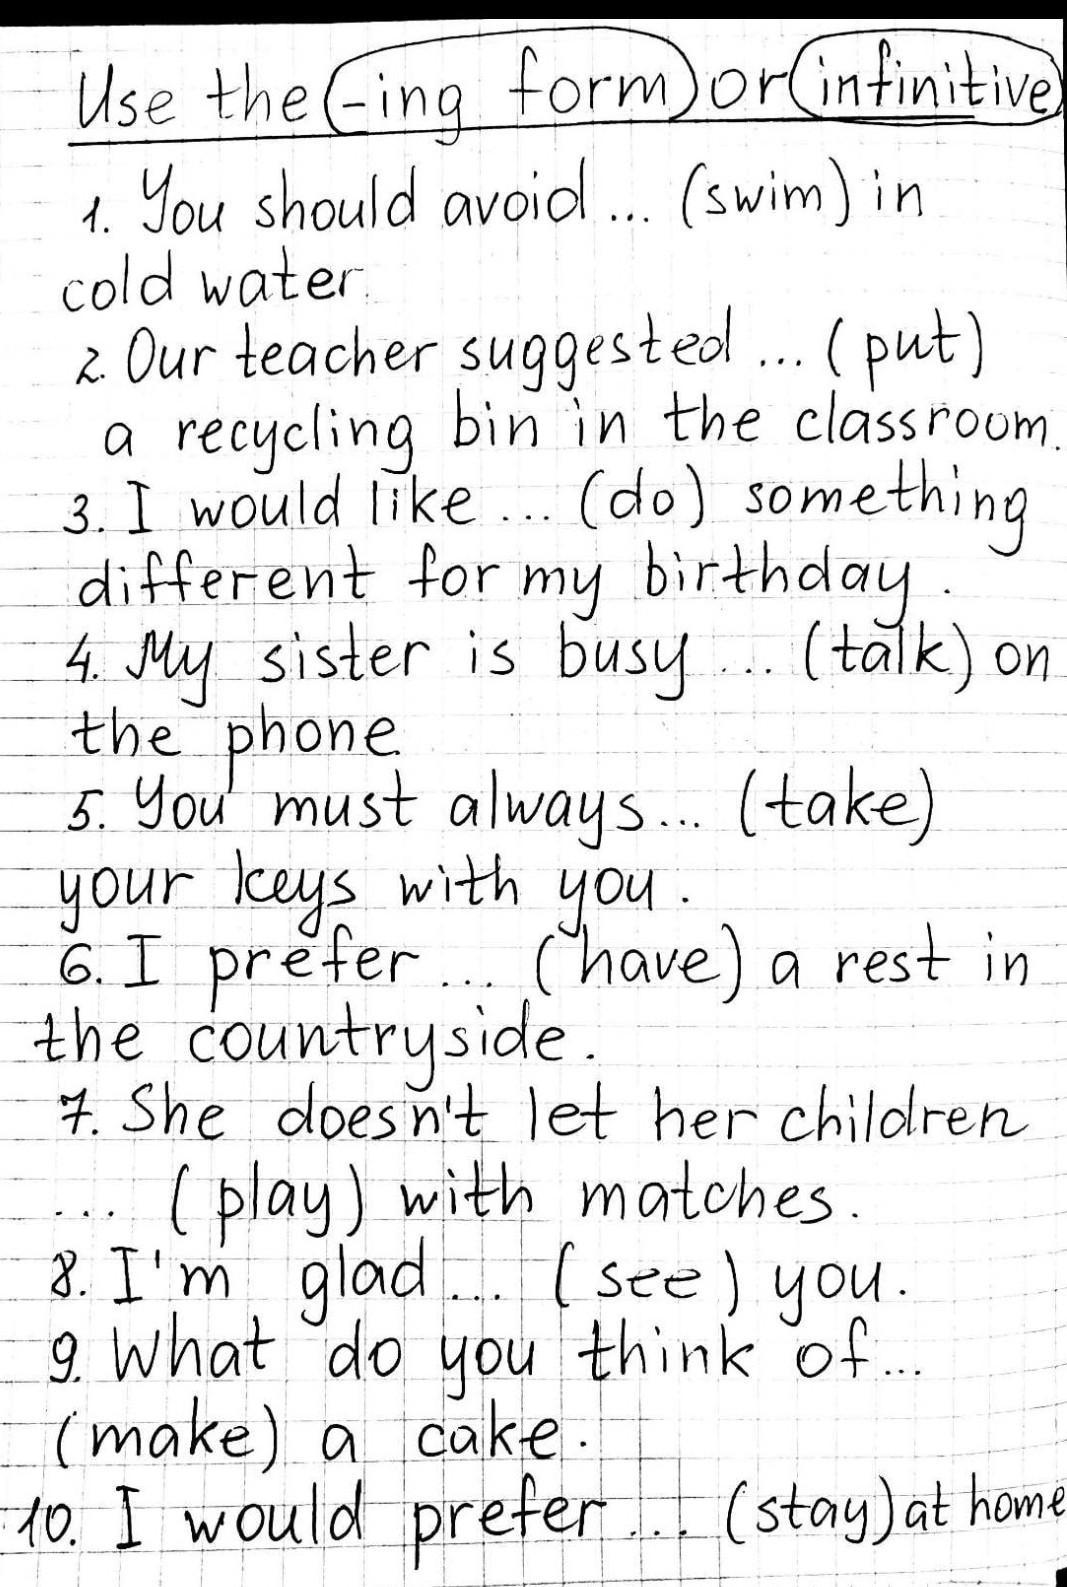 Use the -ing form or infinitive
1. You should avoid ... (swim) in
cold water.
2. Our teacher suggested ... (put)
a recycling bin in the classroom.
3. I would like ... (do) something
different for my birthday.
4. My sister is busy ... (talk) on
the phone
5. You must always... (take)
your keys with you.
6. I prefer ... (have) a rest in
the countryside.
7. She doesn't let her children
... (play) with matches.
8. I'm glad ... (see) you.
9. What do you think of...
(make) a cake.
10. I would prefer ... (stay) at home